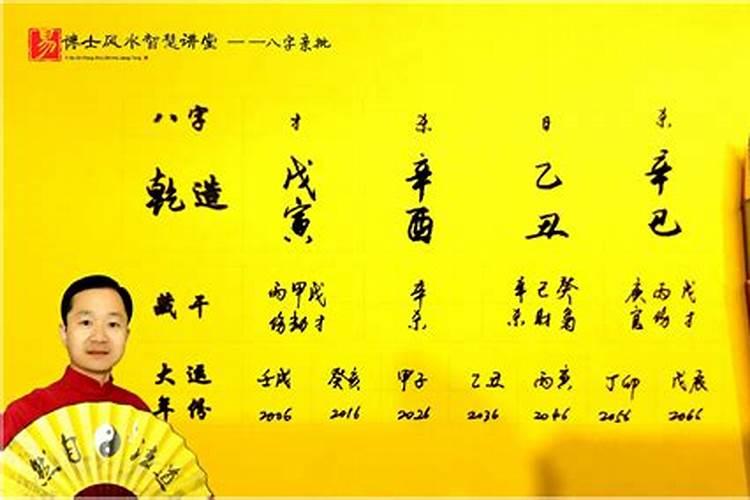 易 博士风水智慧讲堂 ——八字亲批
八字 才 杀 日 杀
乾造 戊 辛 乙 辛
寅 酉 丑 巳
藏干 丙甲戊 辛 辛己癸 庚丙戊
伤劫才 杀 杀财枭 官伤才
大运 壬戌 癸亥 甲子 乙丑 丙寅 丁卯 戊辰
年份 2006 2016 2026 2036 2046 2056 2066
道法自然